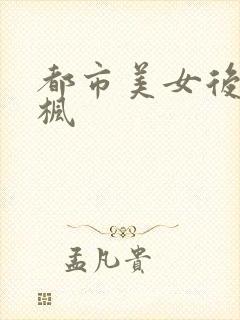 都市美女後
楓
孟凡貴